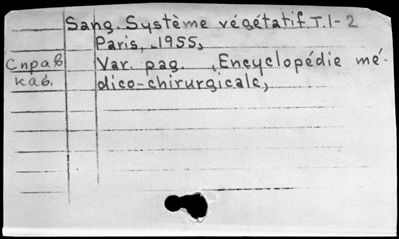 Sang. Système végétatif. T. 1-2
Paris, 1955,
Справ
каб.
Var. pag. , Encyclopédie mé-
dico-chirurgicale,